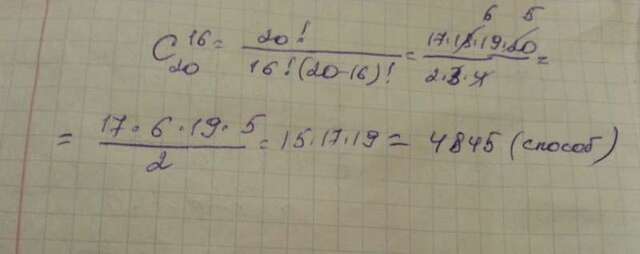 6 5
C₂₀¹⁶ = 20! / 16!(20-16)! = 17·18·19·20 / 2·3·4 =
= 17·6·19·5 / 2 = 15·17·19 = 4845 (способ)